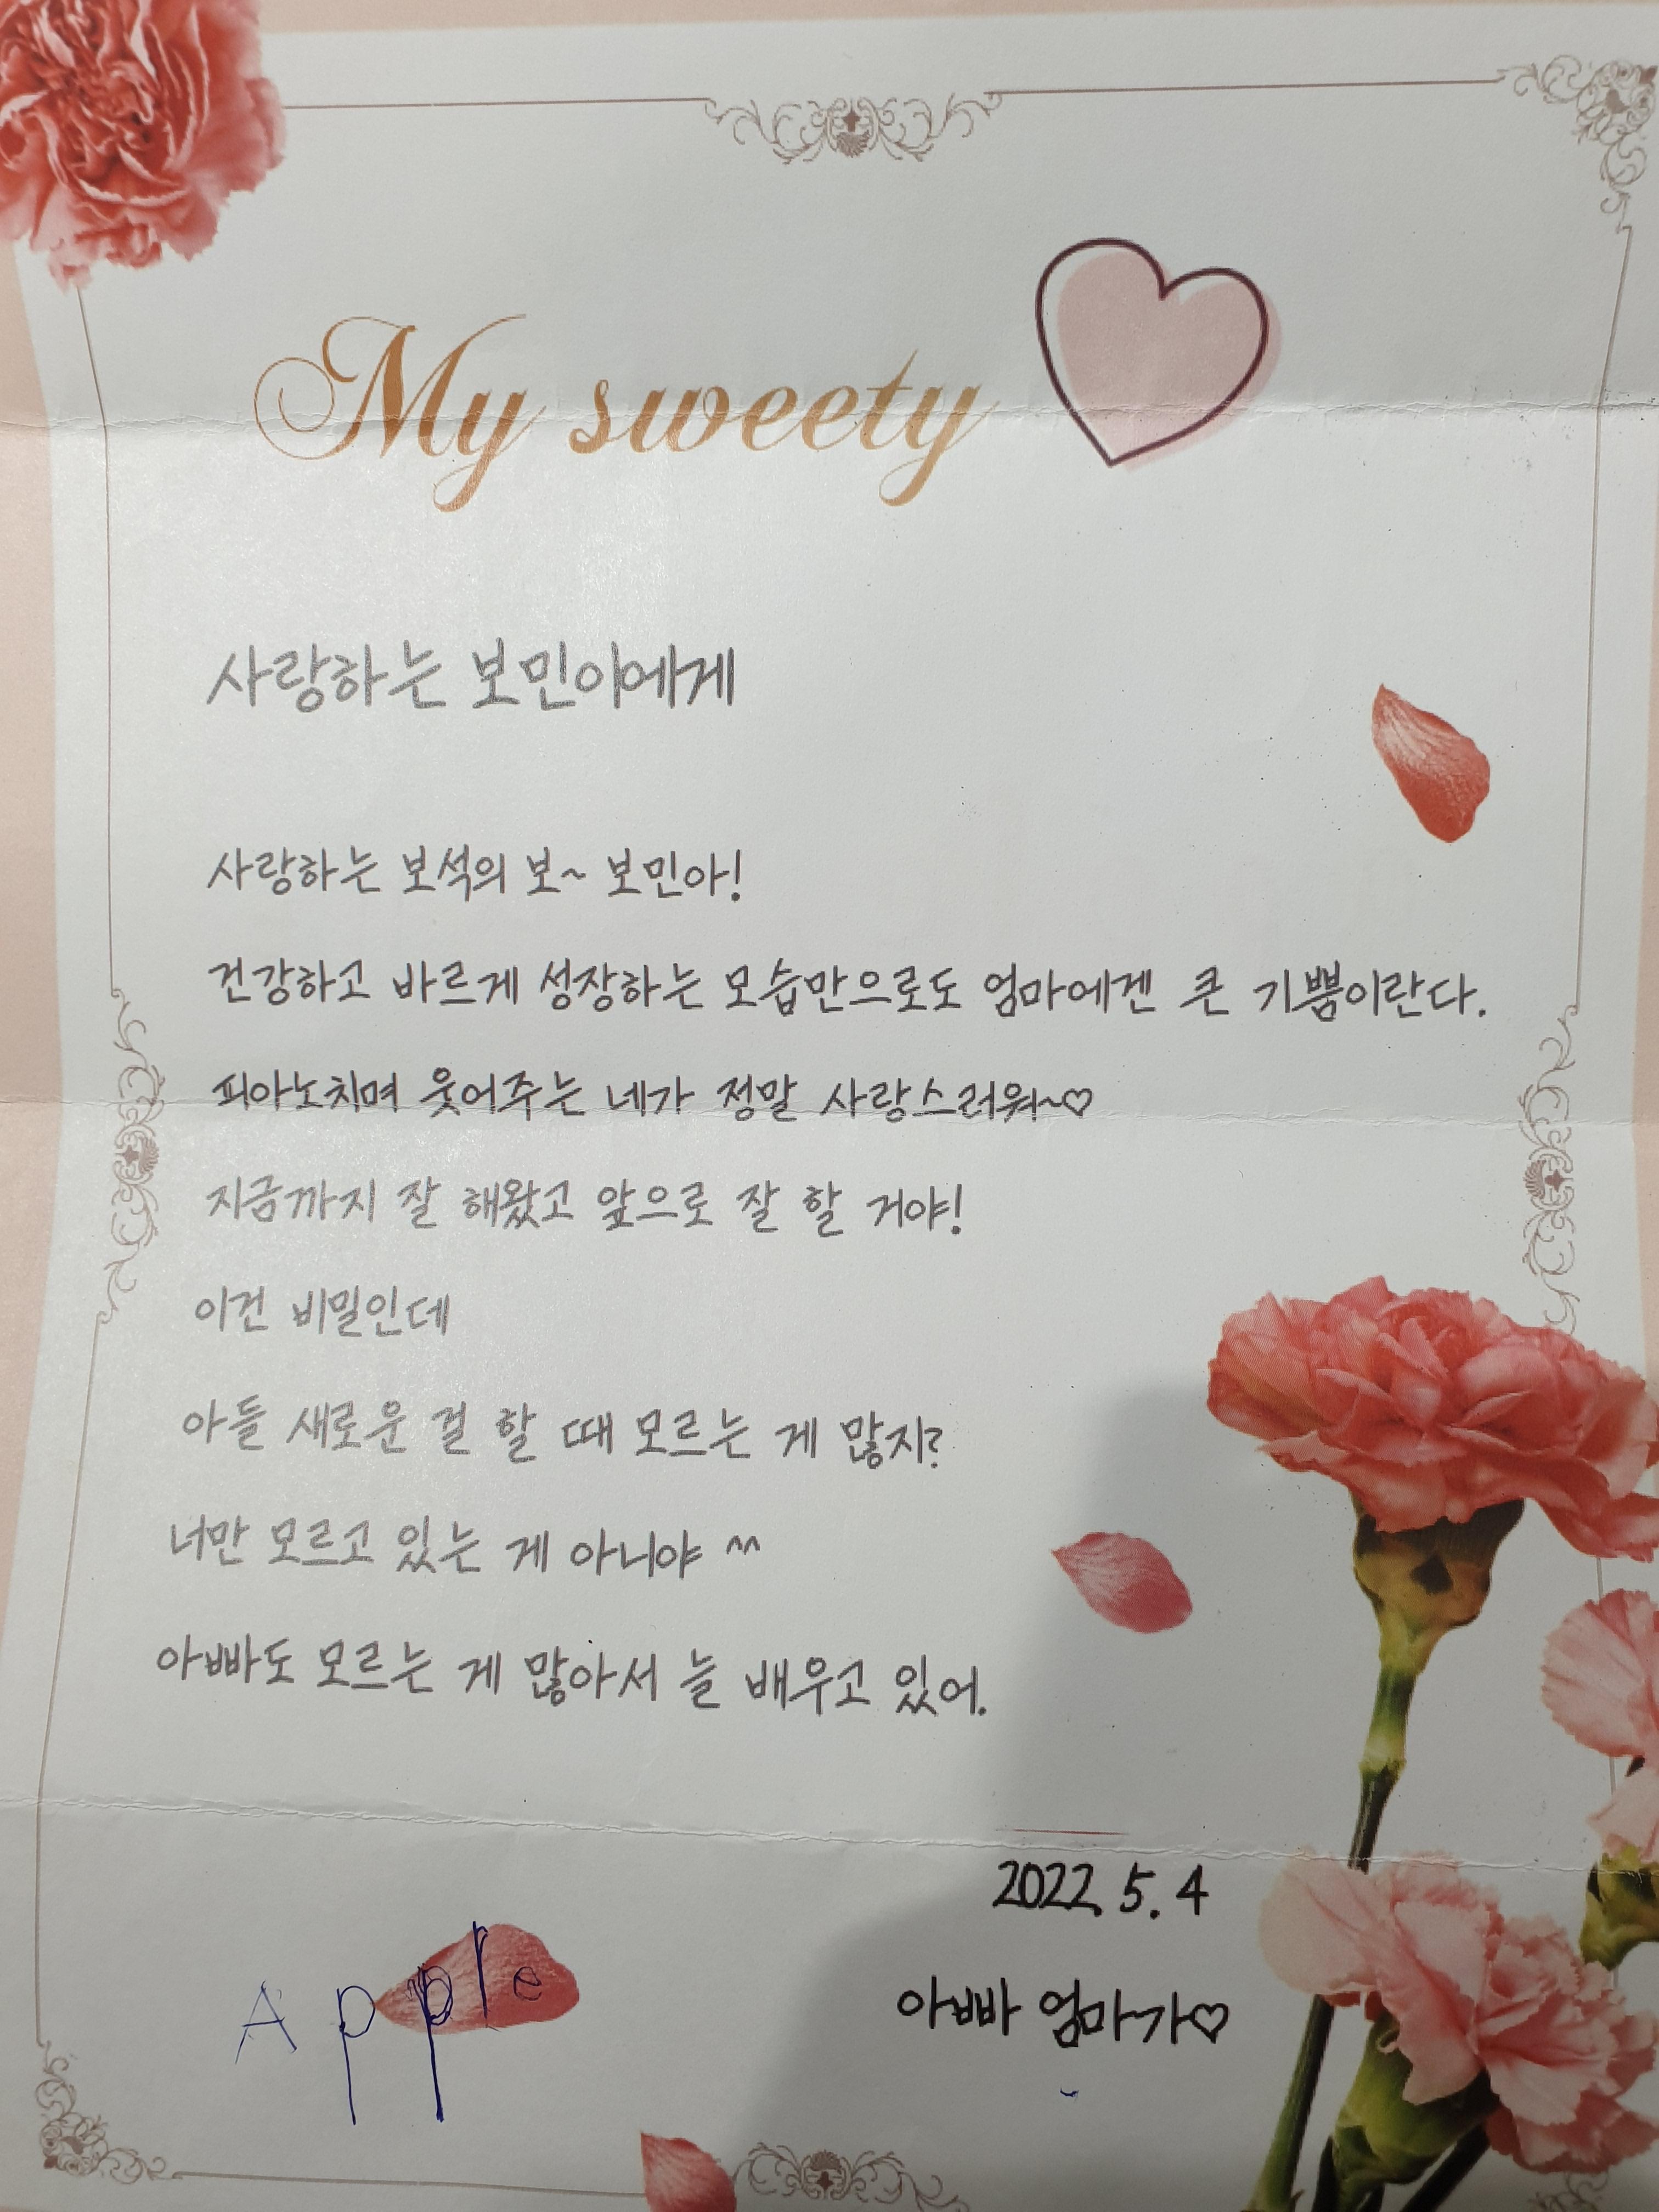 My sweety
사랑하는 보민이에게
사랑하는 보석의 보~ 보민아!
건강하고 바르게 성장하는 모습만으로도 엄마에겐 큰 기쁨이란다.
피아노치며 웃어주는 네가 정말 사랑스러워~♡
지금까지 잘 해왔고 앞으로 잘 할 거야!
이건 비밀인데
아들 새로운 걸 할 때 모르는 게 많지?
너만 모르고 있는 게 아니야 ^^
아빠도 모르는 게 많아서 늘 배우고 있어.
2022. 5. 4
아빠 엄마가♡
Apple